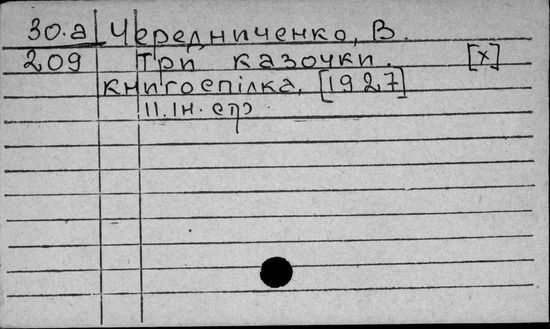 30.а Чередниченко, В.
209 Три казочки. [х]
книгоспілка, [1927]
11.Ін. стр.